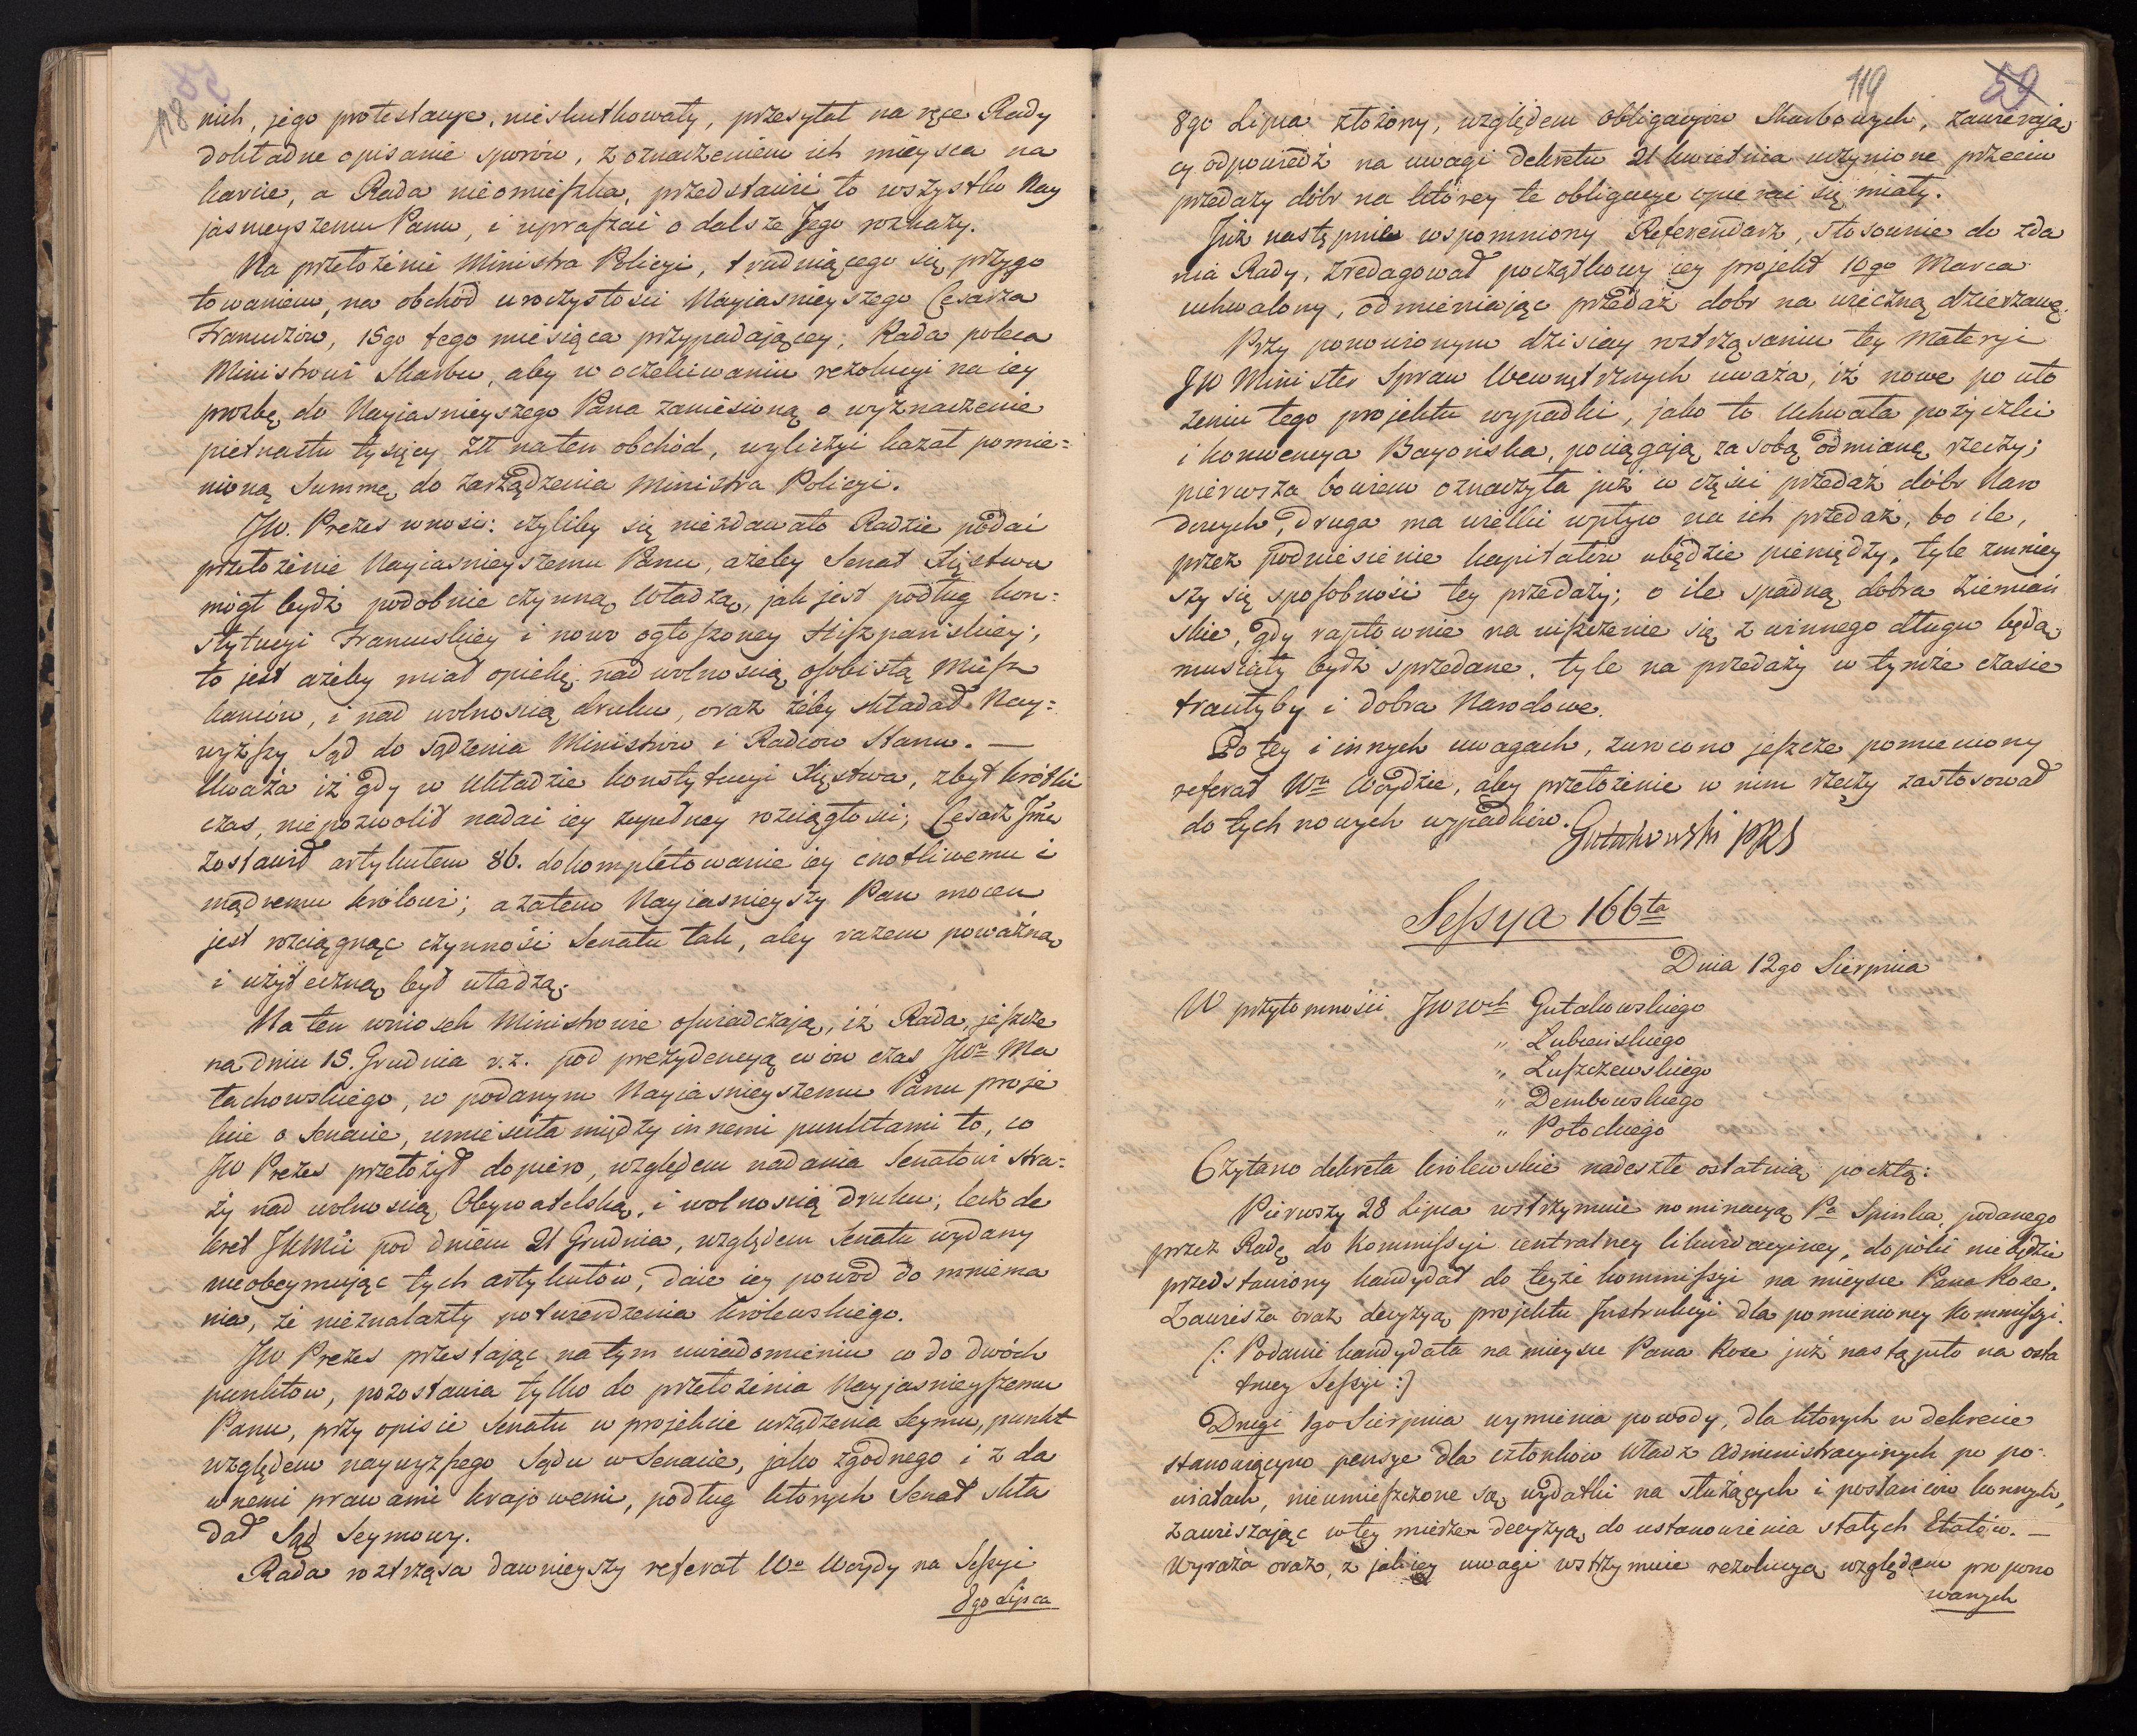 118
58
nich, jego protestacye, nieskutkowały, przesyłał na ręce Rady
dokładne opisanie sporów, z oznaczeniem ich mieysca na
karcie, a Rada nieomieszka, przedstawić to wszystko Nay
jasnieyszemu Panu, i upraszać o dalsze Jego rozkazy.
Na przełożenie Ministra Policyi, trudniącego się przygo
towaniem, na obchód uroczystości Nayiasnieyszego Cesarza
Francuzów, 15go tego miesiąca przypadającey, Rada poleca
Ministrowi Skarbu, aby w oczekiwaniu rezolucyi na iey
prozbę do Nayiasnieyszego Pana zaniesioną o wyznaczenie
pietnastu tysięcy Złł na ten obchód, wyliczyć kazał pomie=
nioną Summę do zarządzenia Ministra Policyi.
JW. Prezes wnosi: czyliby się niezdawało Radzie podać
przełożenie Nayiasnieyszemu Panu, ażeby Senat Xięstwa
mógł bydź podobnie czynną Władzą, jak jest podług kon=
stytucyi Francuskiey i nowo ogłoszoney Hiszpańskiey;
to jest ażeby miał opiekę nad wolnością osobistą Miesz
kańców, i nad wolnością druku, oraz żeby składał Nay=
wyższy Sąd do sądzenia Ministrów i Radców Stanu. —
Uważa iż gdy w układzie konstytucyi Xięstwa, zbyt krótki
czas, niepozwolił nadać iey zupełney rozciągłości; Cesarz Jmć
zostawił artykułem 86. dokompletowanie iey cnotliwemu i
mądremu królowi; a zatem Nayiasnieyszy Pan mocen
jest rozciągnąć czynności Senatu tak, aby razem poważną
i użyteczną był władzą.
Na ten wniosek Ministrowie oświadczają, iż Rada jeszcze
na dniu 15. Grudnia r.z. pod prezydencyą w ów czas JWo Ma
łachowskiego, w podanym Nayiasnieyszemu Panu proje
kcie o Senacie, umieściła między innemi punktami to, co
JW Prezes przełożył dopiero, względem nadania Senatowi stra=
ży nad wolnością Obywatelską, i wolnością druku; lecz de
kret JKMci pod dniem 21 Grudnia, względem Senatu wydany
nieobeymując tych artykułów, daie iey powód do mniema
nia, że nieznalazły potwierdzenia królewskiego.
JW Prezes przestając na tym uwiadomieniu co do dwóch
punktow, pozostawia tylko do przełożenia Nayjasnieyszemu
Panu, przy opisie Senatu w projekcie urządzenia Seymu, punkt
względem naywyższego Sądu w Senacie, jako zgodnego i z da
wnemi prawami krajowemi, podług których Senat skła
dał Sąd Seymowy.
Rada roztrząsa dawnieyszy referat Wo Woydy na Sessyi
8go Lipca
119
59
8go Lipca złożony, względem Obligacyiow Skarbowych, zawierają
cy odpowiedź na uwagi dekretu 21 kwietnia uczynione przeciw
przedaży dóbr na którey te obligacye opierać się miały.
Już następnie wspomniony Referendarz, stosownie do zda
nia Rady, zredagował początkowy iey projekt 10go Marca
uchwalony, odmieniając przedaż dobr na wieczną dzierzawę.
Przy ponowionym dzisiay roztrząsaniu tey materyi
JW Minister Spraw Wewnętrznych uważa, iż nowe po uło
żeniu tego projektu wypadki, jako to Uchwała pożyczki
i konwencya Bayońska, pociągają za sobą odmianę rzeczy;
pierwsza bowiem oznaczyła już w części przedaż dóbr Naro
dowych, druga ma wielki wpływ na ich przedaż, bo ile,
przez podniesienie kapitałów ubędzie pieniędzy, tyle zmniey
szy się sposobność tey przedaży; o ile spadną dobra ziemiań
skie, gdy raptownie na uiszczenie się z winnego długu będą
musiały bydź sprzedane, tyle na przedaży w tymże czasie
traciłyby i dobra Narodowe.
Po tey i innych uwagach, zwrocono jeszcze pomieniony
referat Wu Woydzie, aby przełożenie w nim rzeczy zastosował
do tych nowych wypadków. Gutakowski PRS
Sessya 166ta
Dnia 12go Sierpnia
W przytomności JWWch Gutakowskiego
„ Łubieńskiego
„ Łuszczewskiego
„ Dembowskiego
„ Potockiego
Czytano dekreta królewskie nadeszłe ostatnią pocztą:
Pierwszy 28 Lipca wstrzymuie nominacyą Pa Spinka, podanego
przez Radę do Kommissyi centralney likwidacyiney, dopóki niebędzie
przedstawiony kandydat do teyże kommissyi na mieysce Pana Roze.
Zawiesza oraz decyzyą projektu Instrukcyi dla pomienioney Kommissyi.
(: Podanie kandydata na mieysce Pana Roze już nastąpiło na osta
tniey Sessyi :)
Drugi 1go Sierpnia wymienia powody, dla których w dekrecie
stanowiącym pensye dla członków Władz Administracyinych po po=
wiatach, nieumieszczone są wydatki na służących i posłańców konnych,
zawieszając w tey mierze decyzyą do ustanowienia stałych Etatów. —
Wyraża oraz, z jakiey uwagi wstrzymuie rezolucyą względem propono
wanych